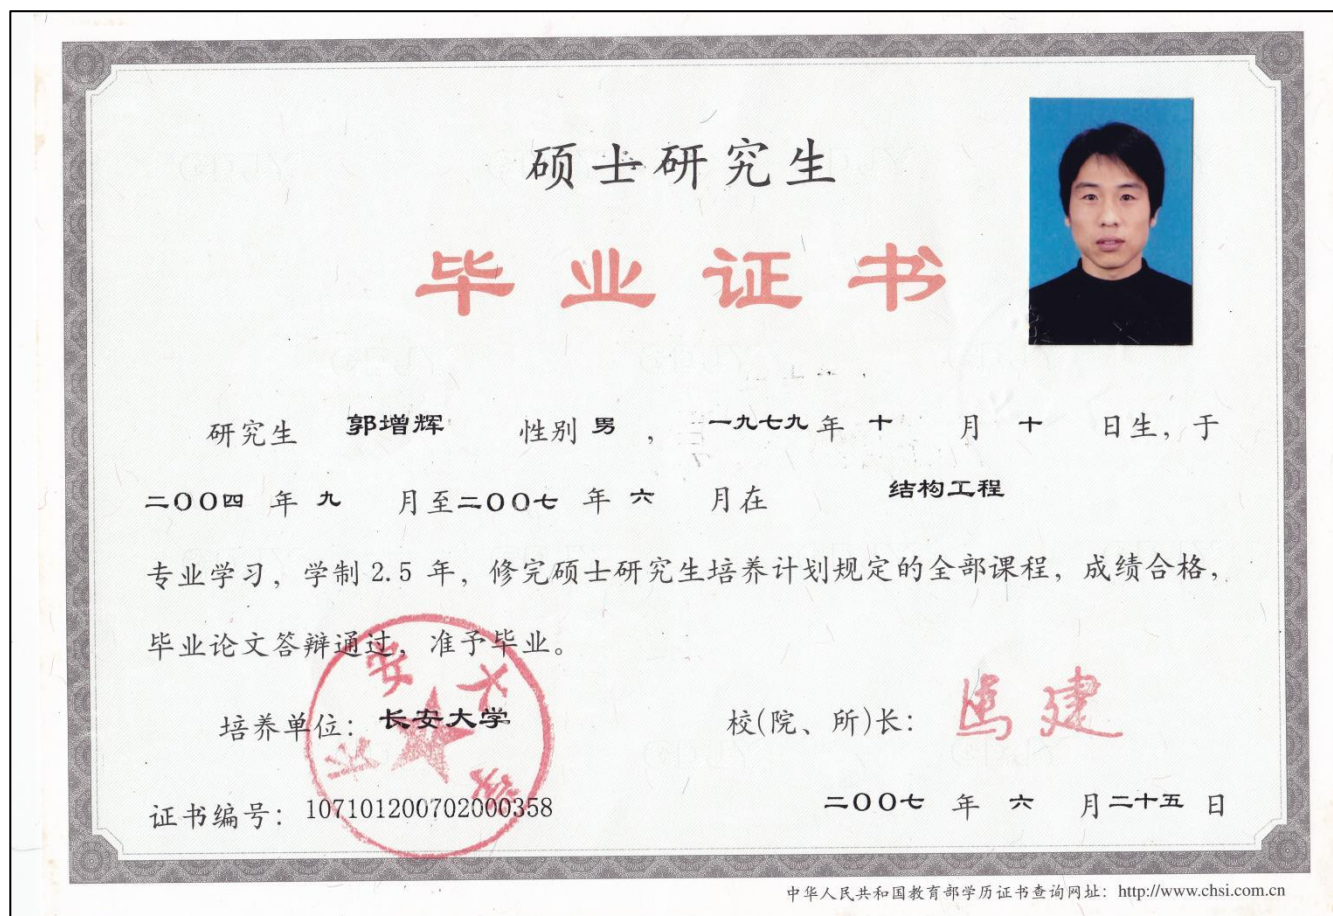 硕士研究生
毕业证书
研究生 郭增辉 性别 男 , 一九七九 年 十 月 十 日生, 于
二〇〇四 年 九 月至 二〇〇七 年 六 月在 结构工程
专业学习, 学制 2.5 年, 修完硕士研究生培养计划规定的全部课程, 成绩合格,
毕业论文答辩通过, 准予毕业。
培养单位: 长安大学 校(院、所)长:
证书编号: 107101200702000358 二〇〇七 年 六 月 二十五 日
中华人民共和国教育部学历证书查询网址: http://www.chsi.com.cn